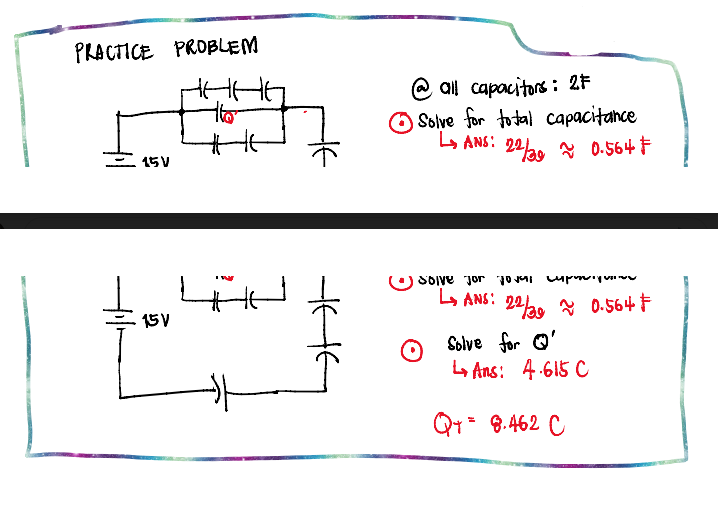 PRACTICE PROBLEM
@ all capacitors: 2F
Solve for total capacitance
↳ ANS: 22/39 ≈ 0.564 F
Q'
15V
Solve for total capacitance
↳ ANS: 22/39 ≈ 0.564 F
15V
Solve for Q'
↳ Ans: 4.615 C
QT = 8.462 C